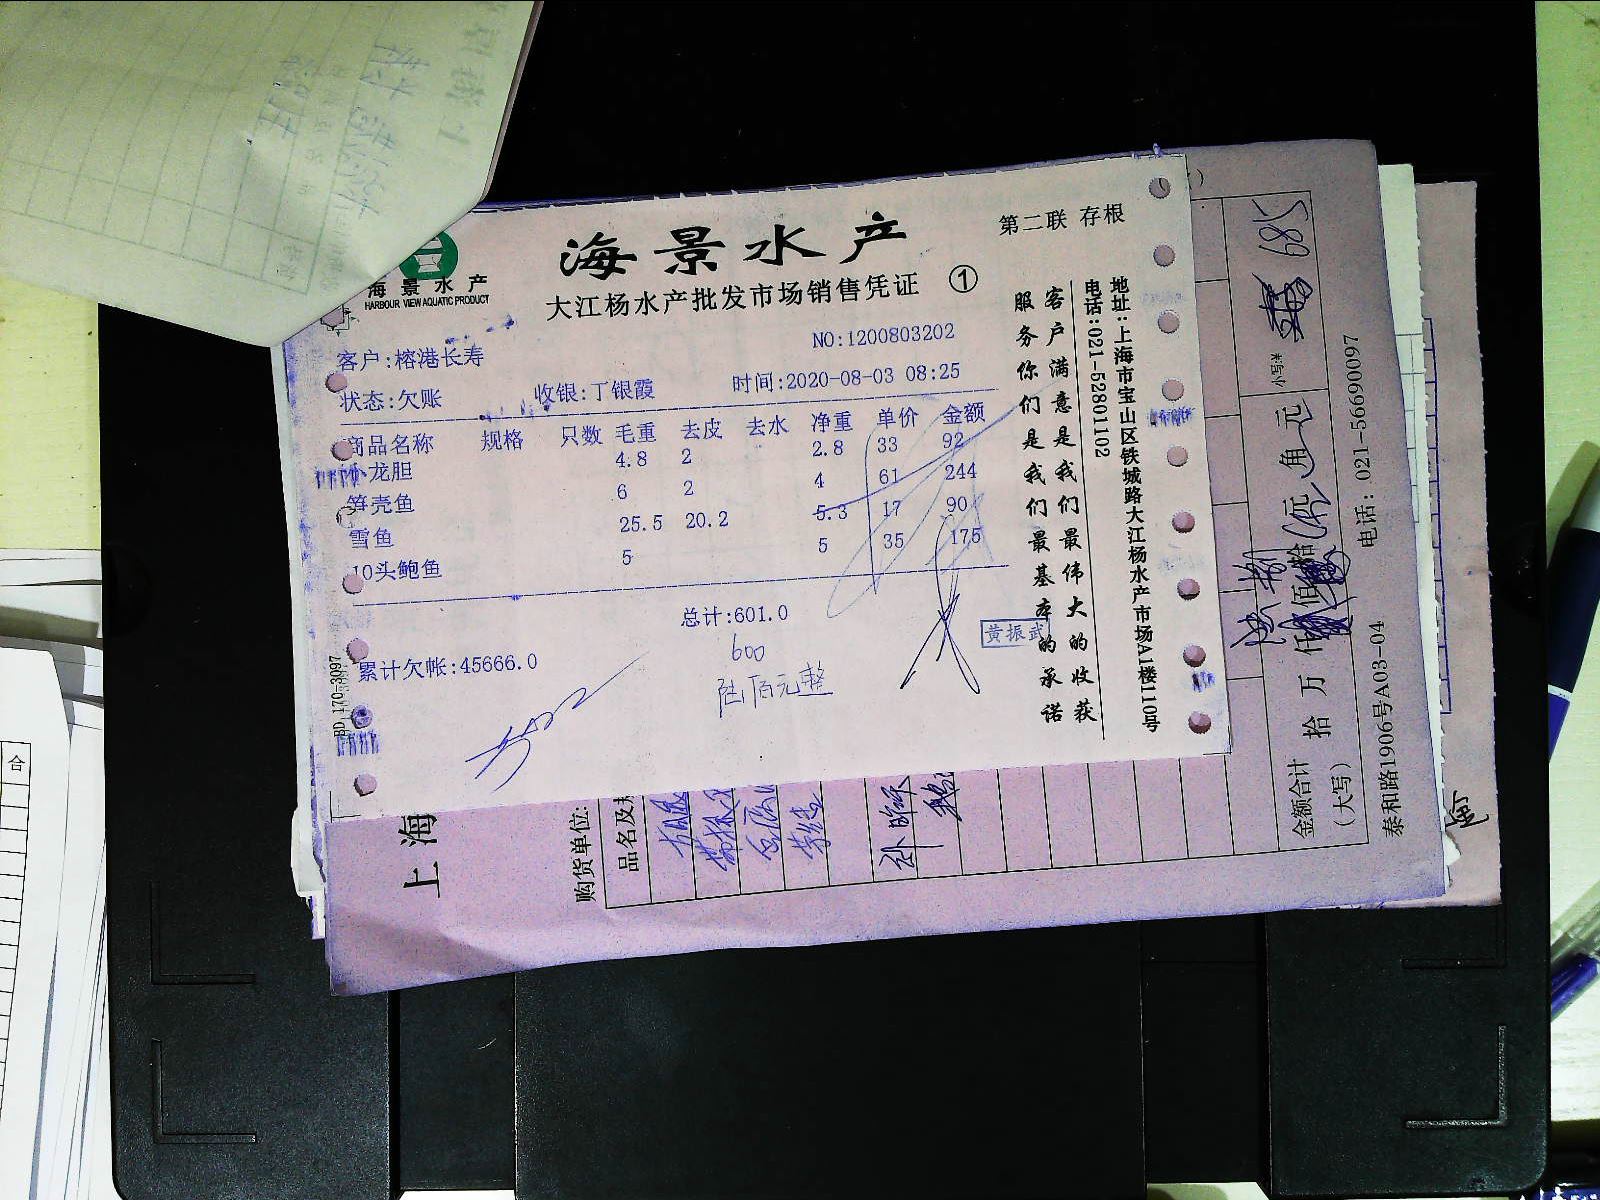 海景水产
HARBOUR VIEW AQUATIC PRODUCT
海景水产
大江杨水产批发市场销售凭证 ①
第二联 存根
NO:1200803202
客户:榕港长寿
状态:欠账 收银:丁银霞 时间:2020-08-03 08:25
商品名称 规格 只数 毛重 去皮 去水 净重 单价 金额
小龙胆 4.8 2 2.8 33 92
笋壳鱼 6 2 4 61 244
雪鱼 25.5 20.2 5.3 17 90
10头鲍鱼 5 5 35 175
总计:601.0
累计欠帐:45666.0
600
陆佰元整
黄振武
BD 170-3097
客户满意是我们最伟大的收获
服务你们是我们最基本的承诺
地址:上海市宝山区铁城路大江杨水产市场A1楼110号
电话:021-52801102
上海
购货单位:
品名及规
金额合计
(大写)
拾万仟佰拾元角元
小写¥
685
泰和路1906号A03-04
电话: 021-56690097
合